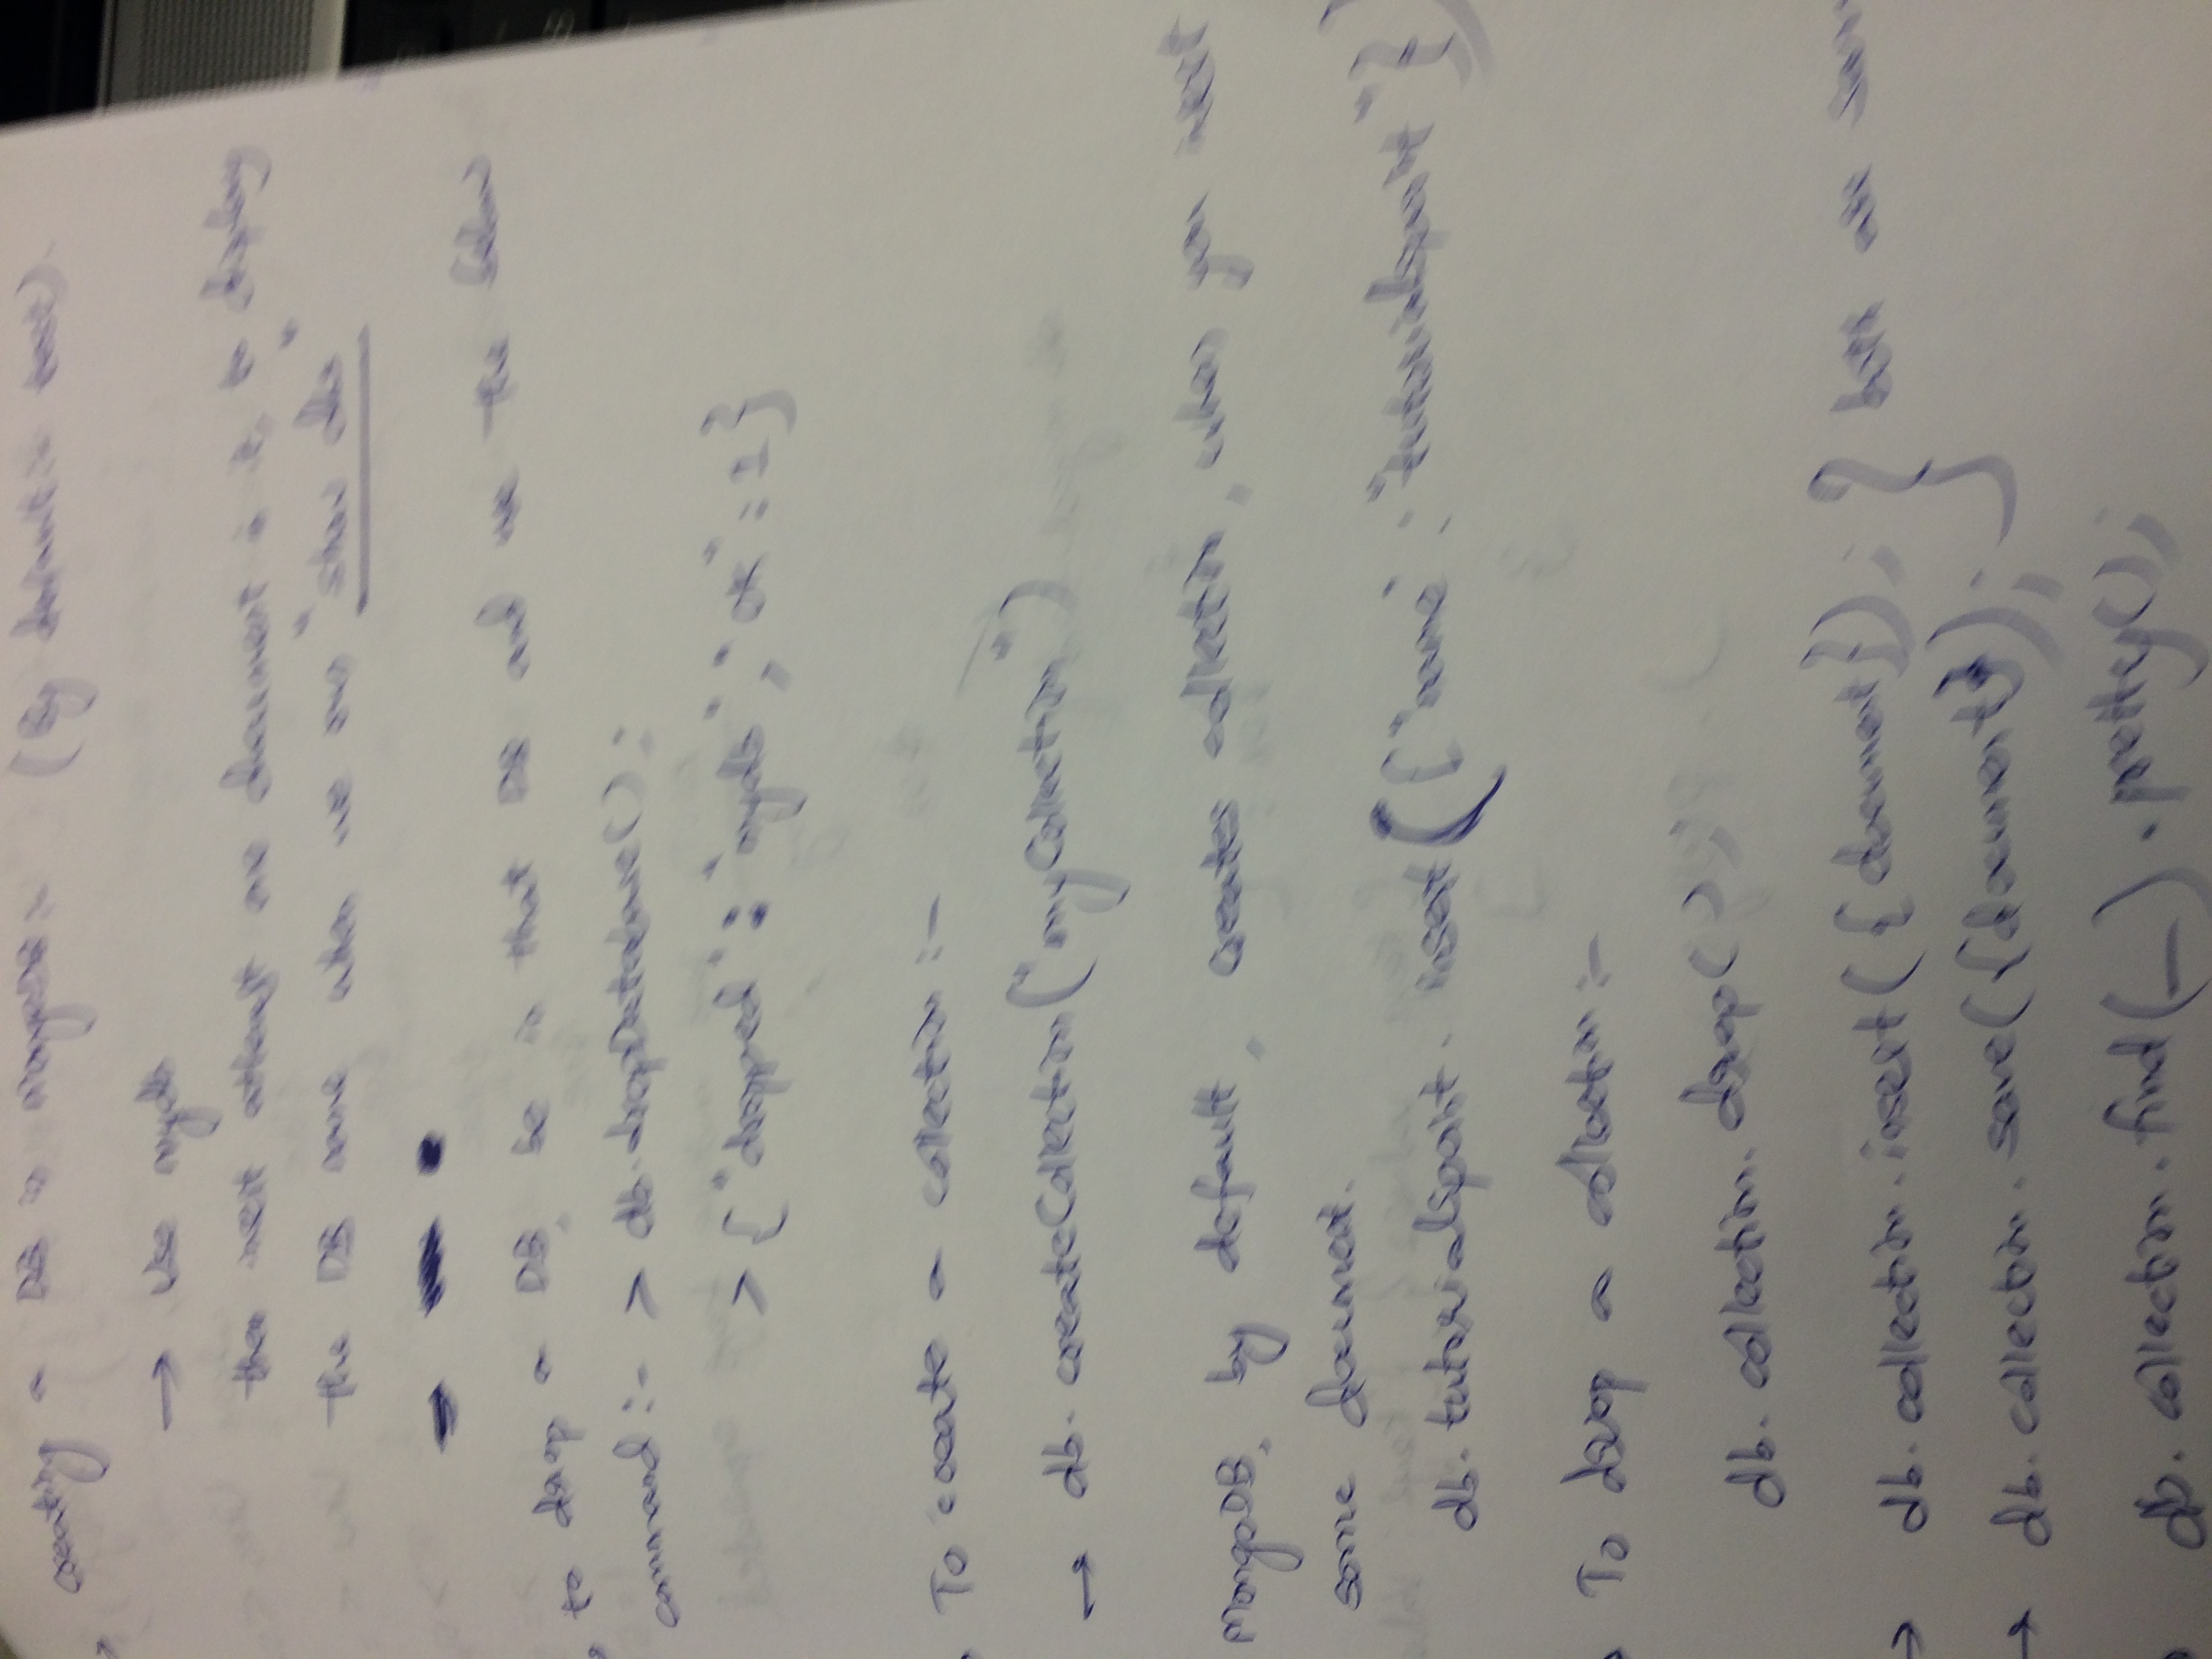 → creating a DB in MongoDB :- (By default is test).
→ Use mydb
then insert atleast one document in it, to display
the DB name when we run "show dbs"
→ to drop a DB, be in that DB and use the below
command :- > db.dropDatabase();
> { "dropped" : "mydb", "ok" : 1 }
To create a collection :-
→ db.createCollection("myCollection")
MongoDB, by default, creates collection, when you insert
some document.
db.tutorialspoint.insert({"name" : "tutorialspoint"})
To drop a collection :-
db.collection.drop();
→ db.collection.insert({document}); } both are same
→ db.collection.save({document});
db.collection.find(_).pretty();